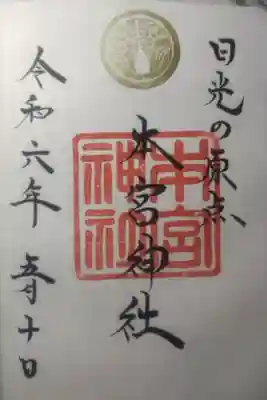 日光の原点
本宮神社
本宮
神社
令和六年 五月十日